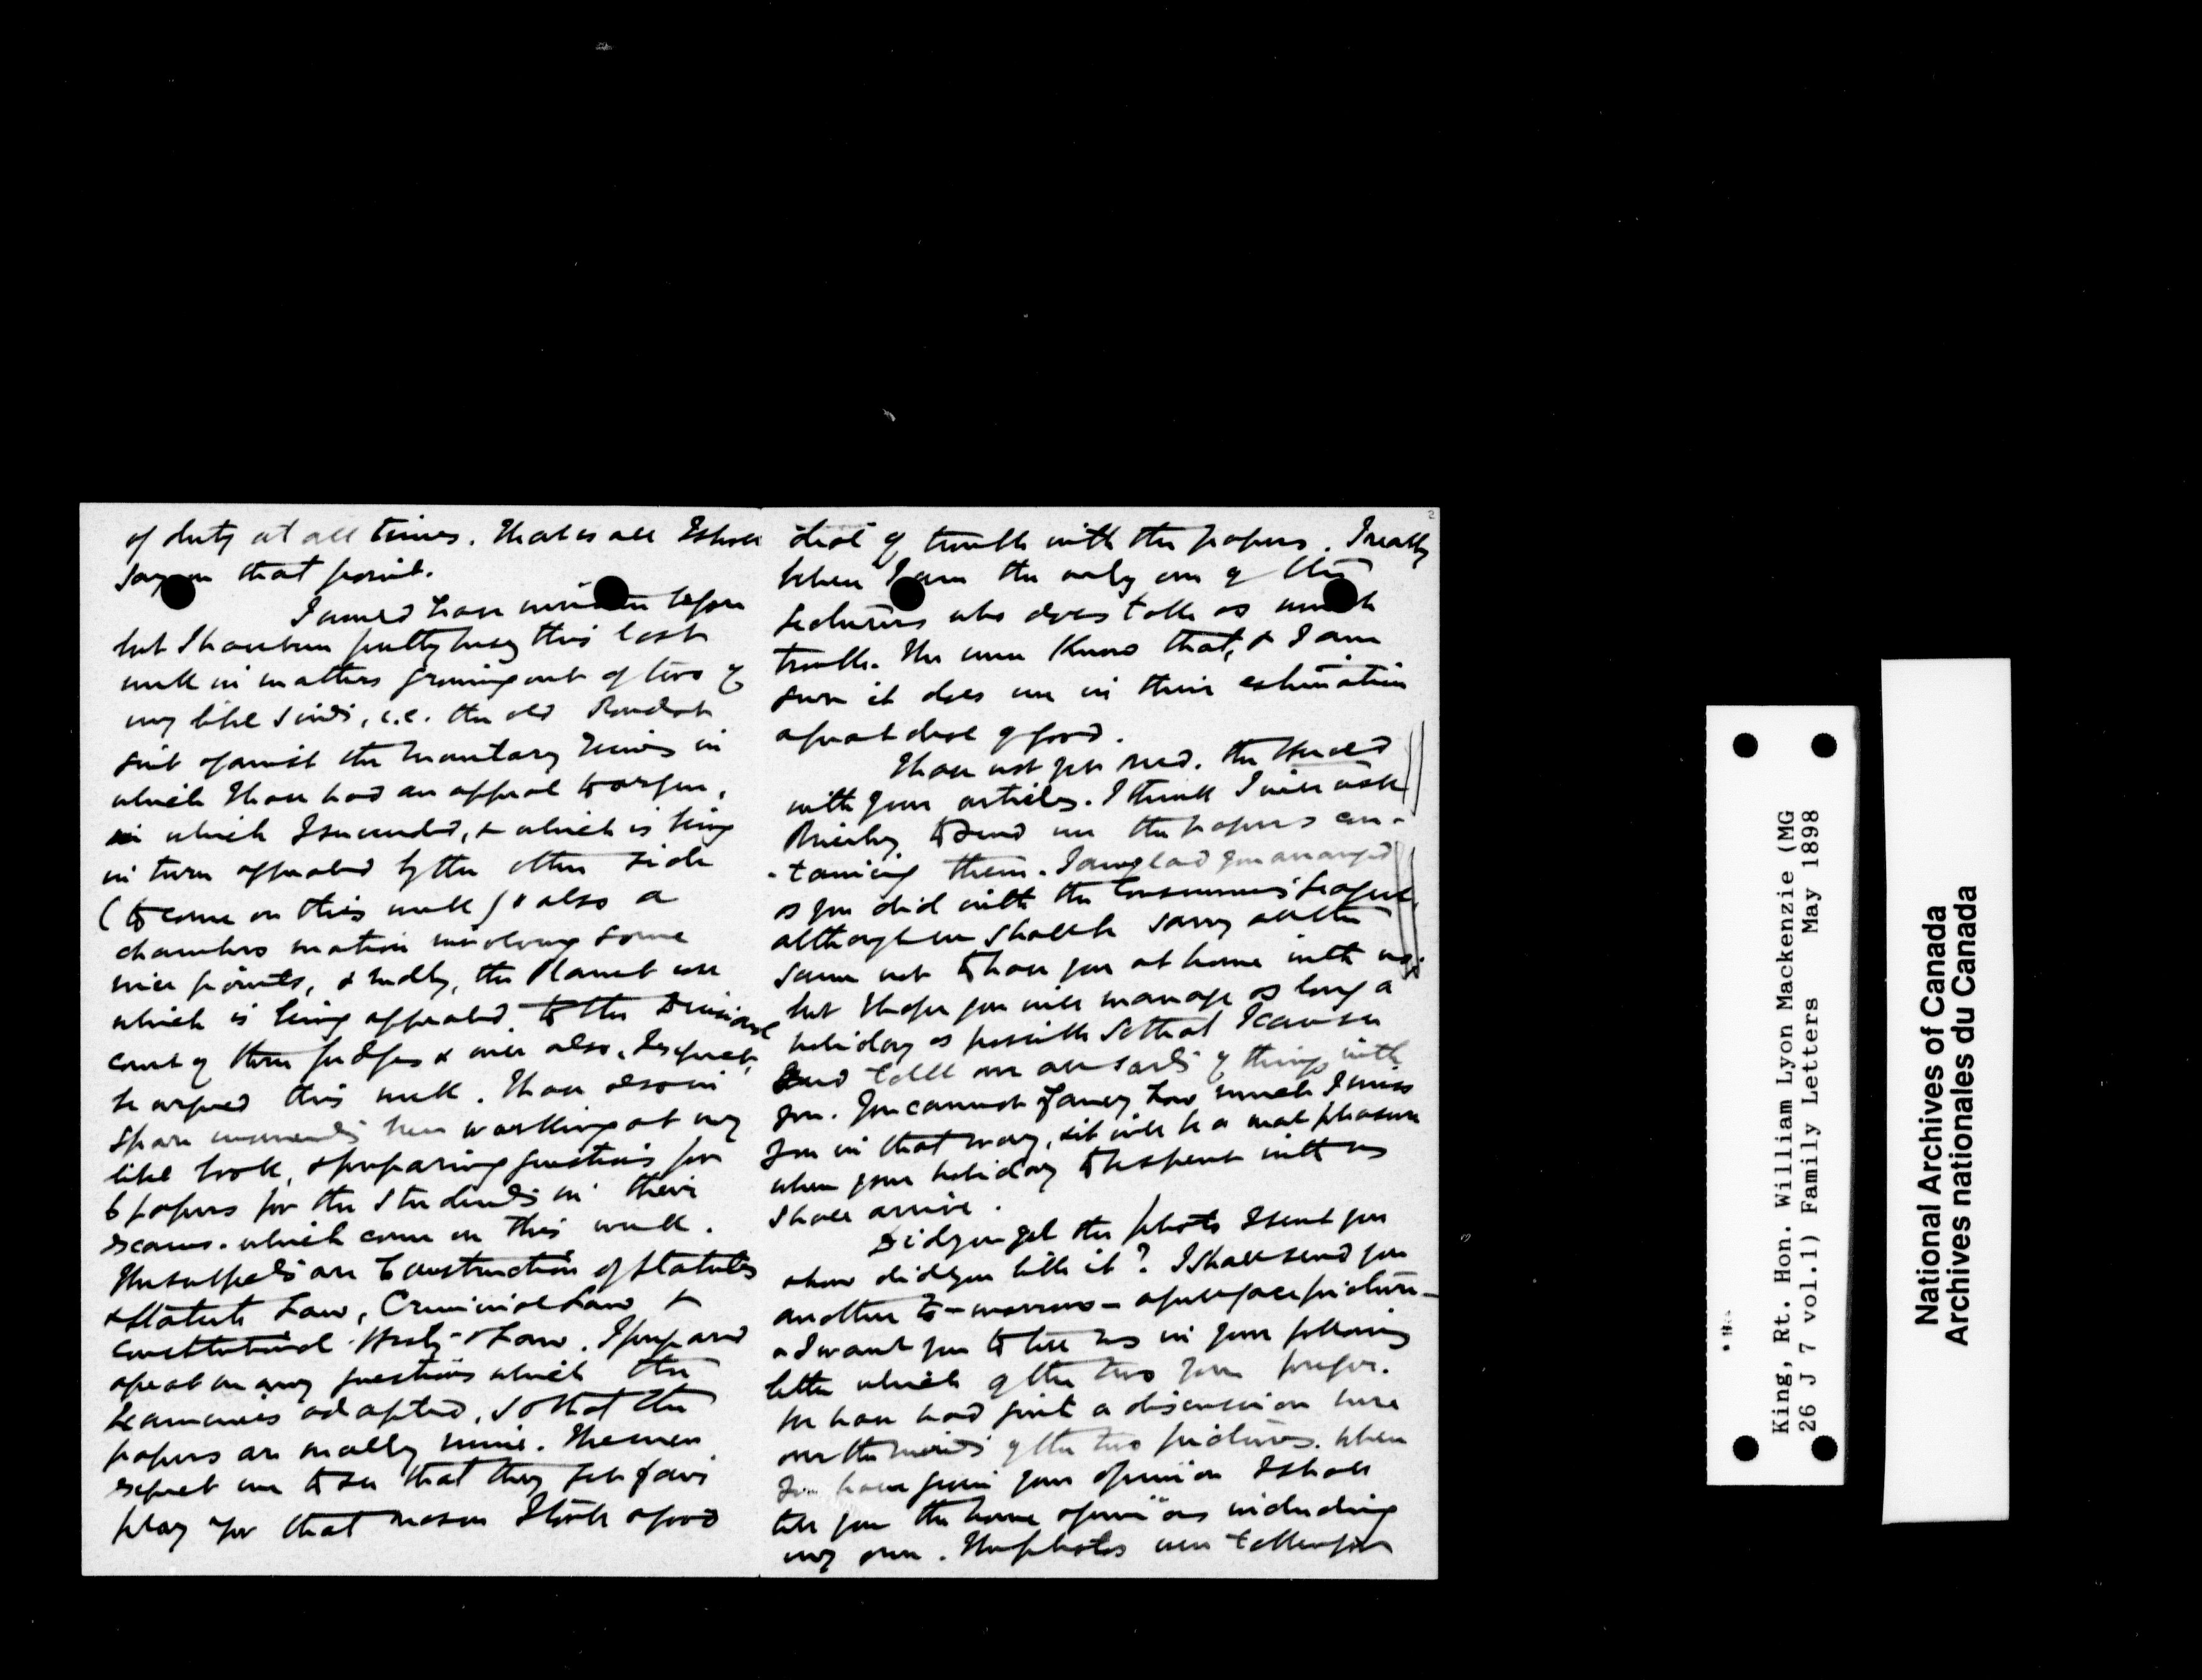 of duty at all times. That is all I shall
say on that point.
I would have written before
but I have been pretty busy this last
week in matters growing out of two of
my libel suits, i.e. the old
suit against the Monetary Times in
which I have had an appeal to argue,
in which I succeeded, & which is being
in turn appealed by the other side
(to come on this week) & also a
chambers motion involving some
nice points, & 2ndly, the Planet case
which is being appealed to the Divisional
court of three judges & will also, I expect,
be argued this week. I have also in
spare moments been working at my
libel book, & preparing questions for
6 papers for the students in their
exams. which come on this week.
The subjects are Construction of Statutes
& Statute Law, Criminal Law &
Constitutional Hist'y & Law. I prepared
a great many questions which the
Examiners adopted, so that the
papers are really mine. The men
expect me to see that they get fair
play & for that reason I took a good
deal of trouble with the papers. I really
believe I am the only one of the
lecturers who does take as much
trouble. The men know that, & I am
sure it does me in their estimation
a great deal of good.
I have not yet rec'd. the Herald
with your articles. I think I will ask
to send me the papers con-
-taining them. I am glad you arranged
as you did with the Consumers' League,
although we shall be sorry all the
same not to have you at home with us.
but I hope you will manage as long a
holiday as possible so that I can see
and talk over all sorts of things with
you. You cannot fancy how much I miss
you in that way, & it will be a real pleasure
when your holiday to be spent with us
shall arrive.
Did you get the photo I sent you
& how did you like it? I shall send you
another to-morrow - a full face picture -
& I want you to tell us in your following
letter which of the two you prefer.
We have had quite a discussion here
over the merits of the two pictures. When
you have given your opinion I shall
tell you the home opinions including
my own. The photos were taken for
2
King, Rt. Hon. William Lyon Mackenzie (MG
26 J 7 vol.1) Family Letters May 1898
National Archives of Canada
Archives nationales du Canada